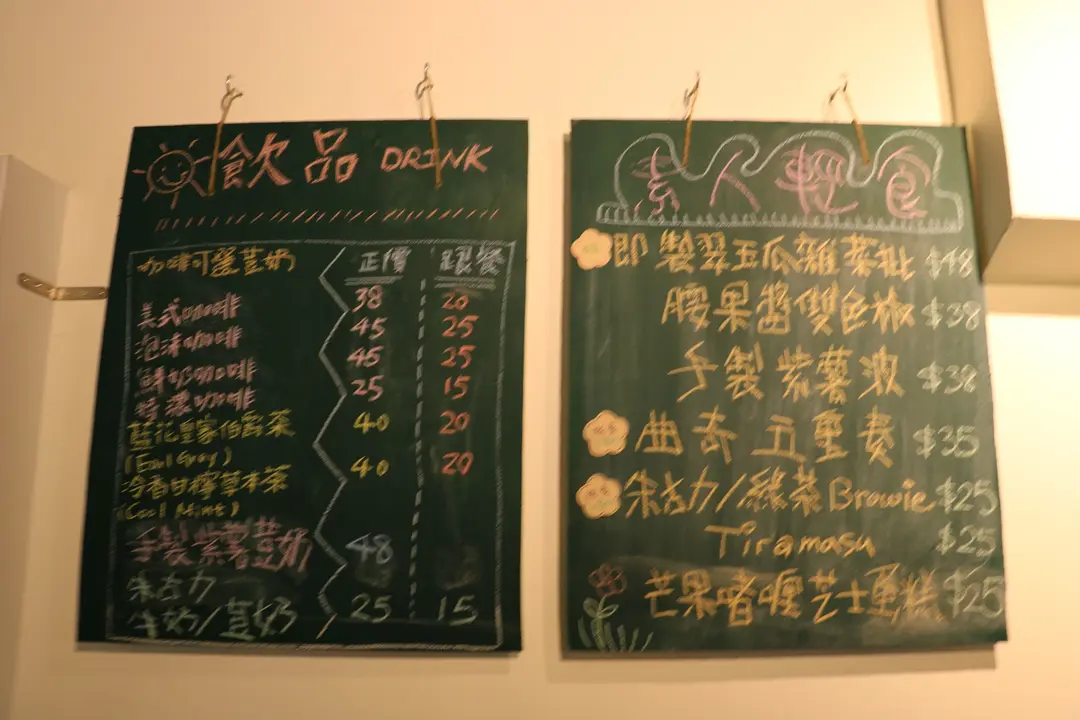 飲品 DRINK
咖啡可選荳奶 正價 跟餐
美式咖啡 38 20
泡沫咖啡 45 25
鮮奶咖啡 45 25
特濃咖啡 25 15
藍花皇家伯爵茶 40 20
(Earl Grey)
冷香甘檸草本茶 40 20
(Cool Mint)
手製紫薯荳奶 48
朱古力
牛奶/荳奶 25 15
素人輕食
即製翠玉瓜雜菜批 $48
腰果醬雙色椒 $38
手製紫薯波 $38
曲奇五重奏 $35
朱古力/綠茶Browie $25
Tiramasu $25
芒果啫喱芝士蛋糕 $25